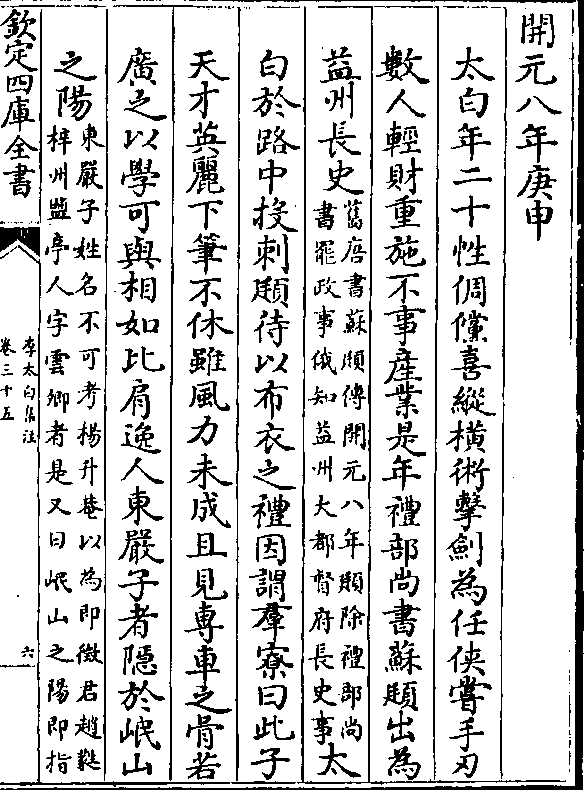 開元八年庚申
太白年二十性倜儻喜縱横術擊劍為任俠嘗手刃
數人輕財重施不事産業是年禮部尚書蘇頲出為
益州長史
舊唐書蘇頲傳開元八年頲除禮部尚
書罷政事俄知益州大都督府長史事
太
白於路中投刺頲待以布衣之禮因謂羣寮曰此子
天才英麗下筆不休雖風力未成且見專車之骨若
廣之以學可與相如比肩逸人東嚴子者隱於岷山
之陽
東嚴子姓名不可考楊升菴以為即徵君趙蕤
梓州盬亭人字雲卿者是又曰岷山之陽即指
欽定四庫全書
李太白集注
卷三十五
六